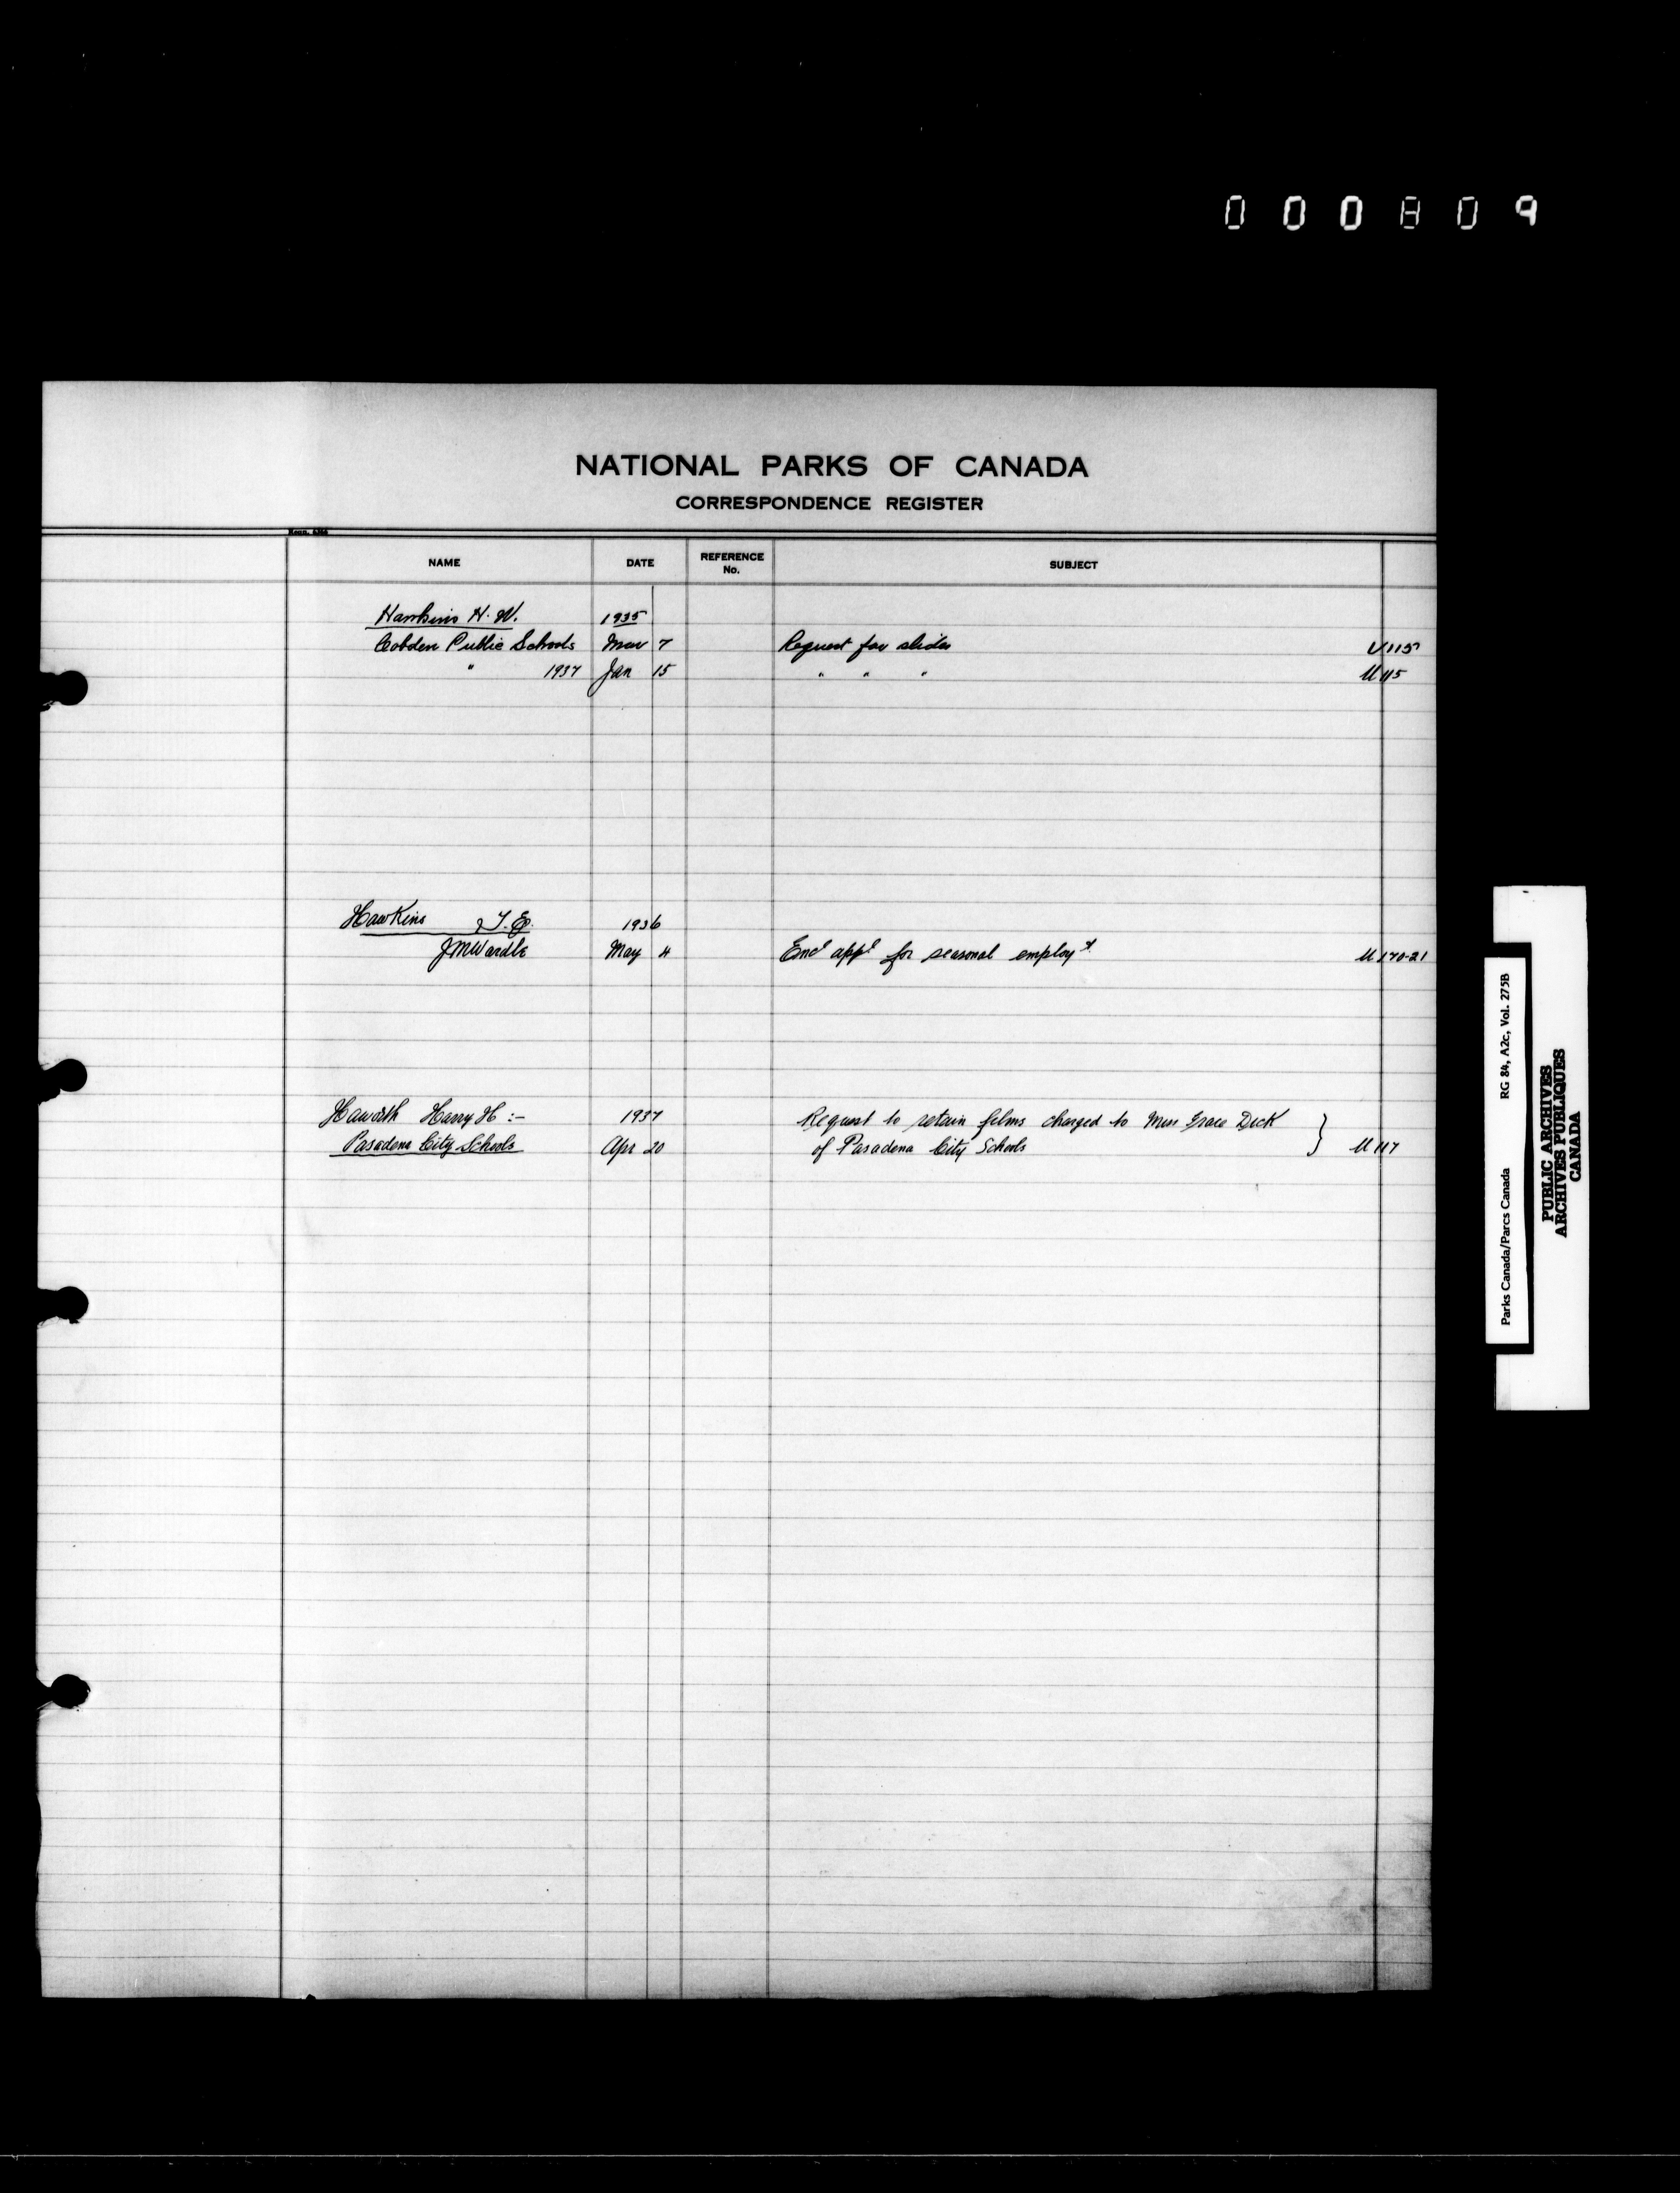 000809
NATIONAL PARKS OF CANADA
CORRESPONDENCE REGISTER
NAME DATE REFERENCE No. SUBJECT
Hawkins H. W. 1935
Cobden Public Schools Mar 7 Request for slides U 115
" 1937 Jan 15 " " " U 115
Hawkins T. E. 1936
J M Wardle May 4 Encl appl for seasonal employt U 170-21
Haworth Harry H :- 1937 Request to retain films charged to Miss Grace Dick
Pasadena City Schools Apr 20 of Pasadena City Schools } U 117
Parks Canada/Parcs Canada RG 84, A2c, Vol. 275B
PUBLIC ARCHIVES
ARCHIVES PUBLIQUES
CANADA